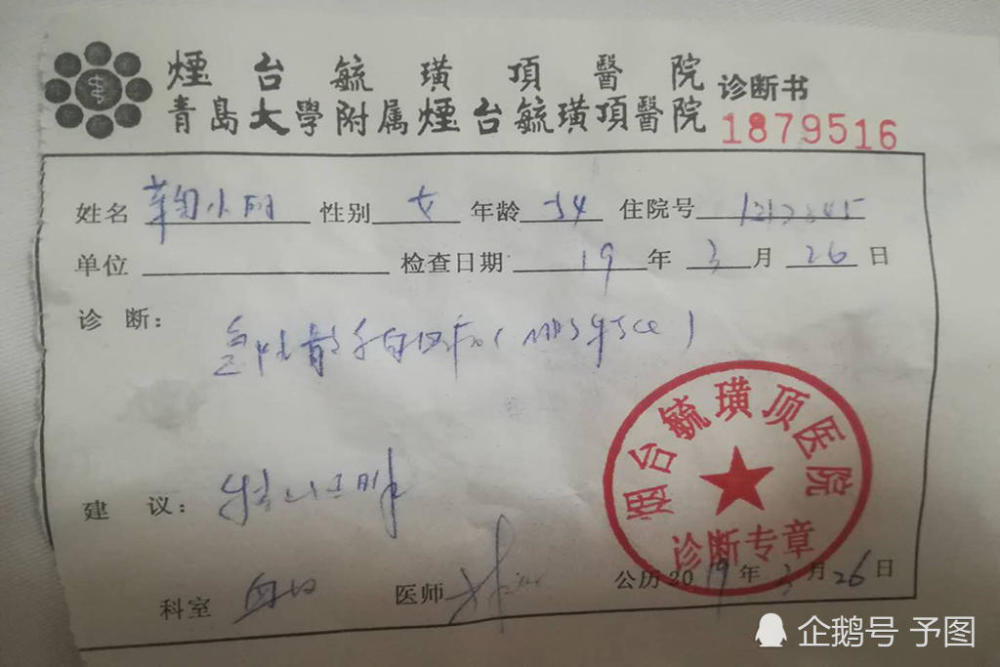 煙台毓璜頂醫院
青島大學附属煙台毓璜頂醫院 诊断书
1879516
姓名 鞠小丽 性别 女 年龄 34 住院号 1213845
单位 检查日期 19 年 3 月 26 日
诊断：
急性髓系白血病（
烟台毓璜顶医院
建议： 特此证明
诊断专章
科室 血内 医师 公历 2019 年 3 月 26 日
企鹅号 予图